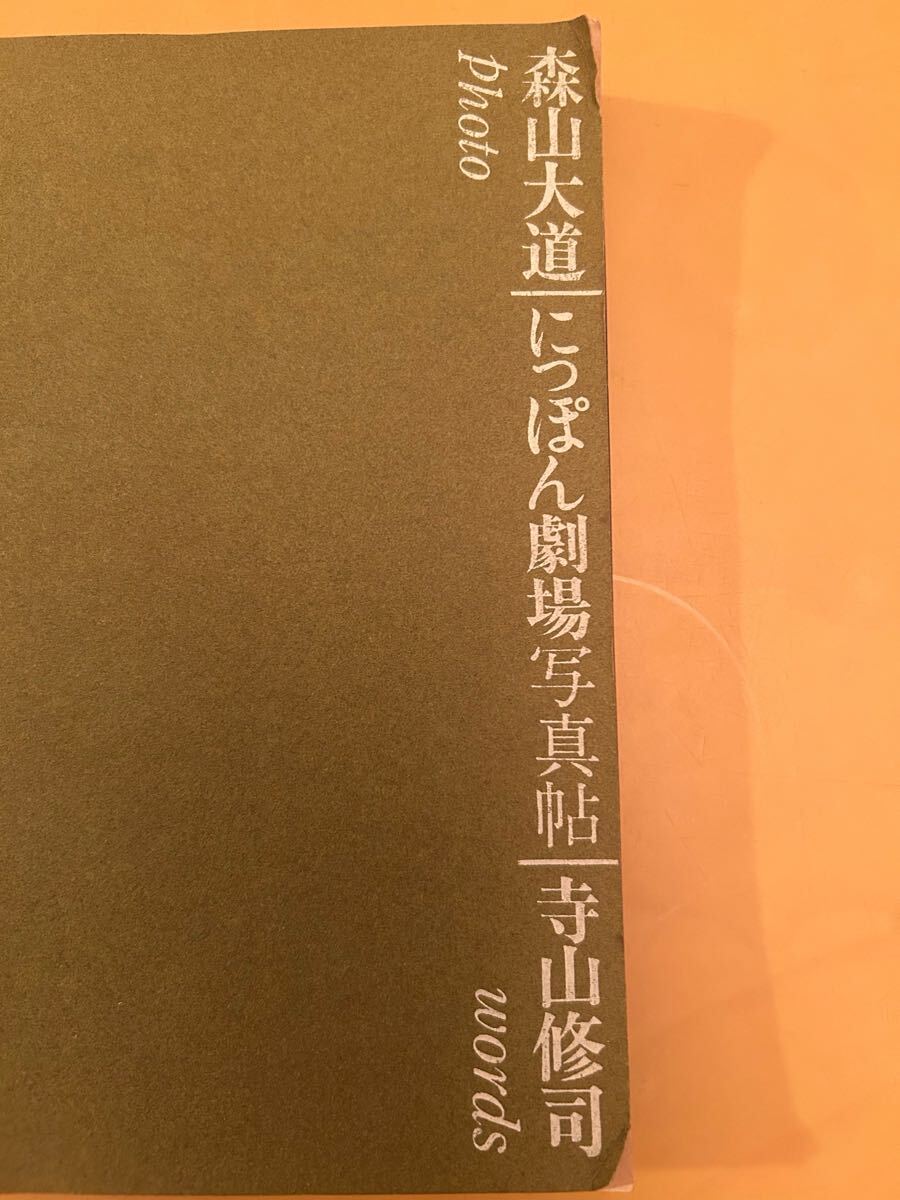 森山大道|にっぽん劇場写真帖|寺山修司
photo
words